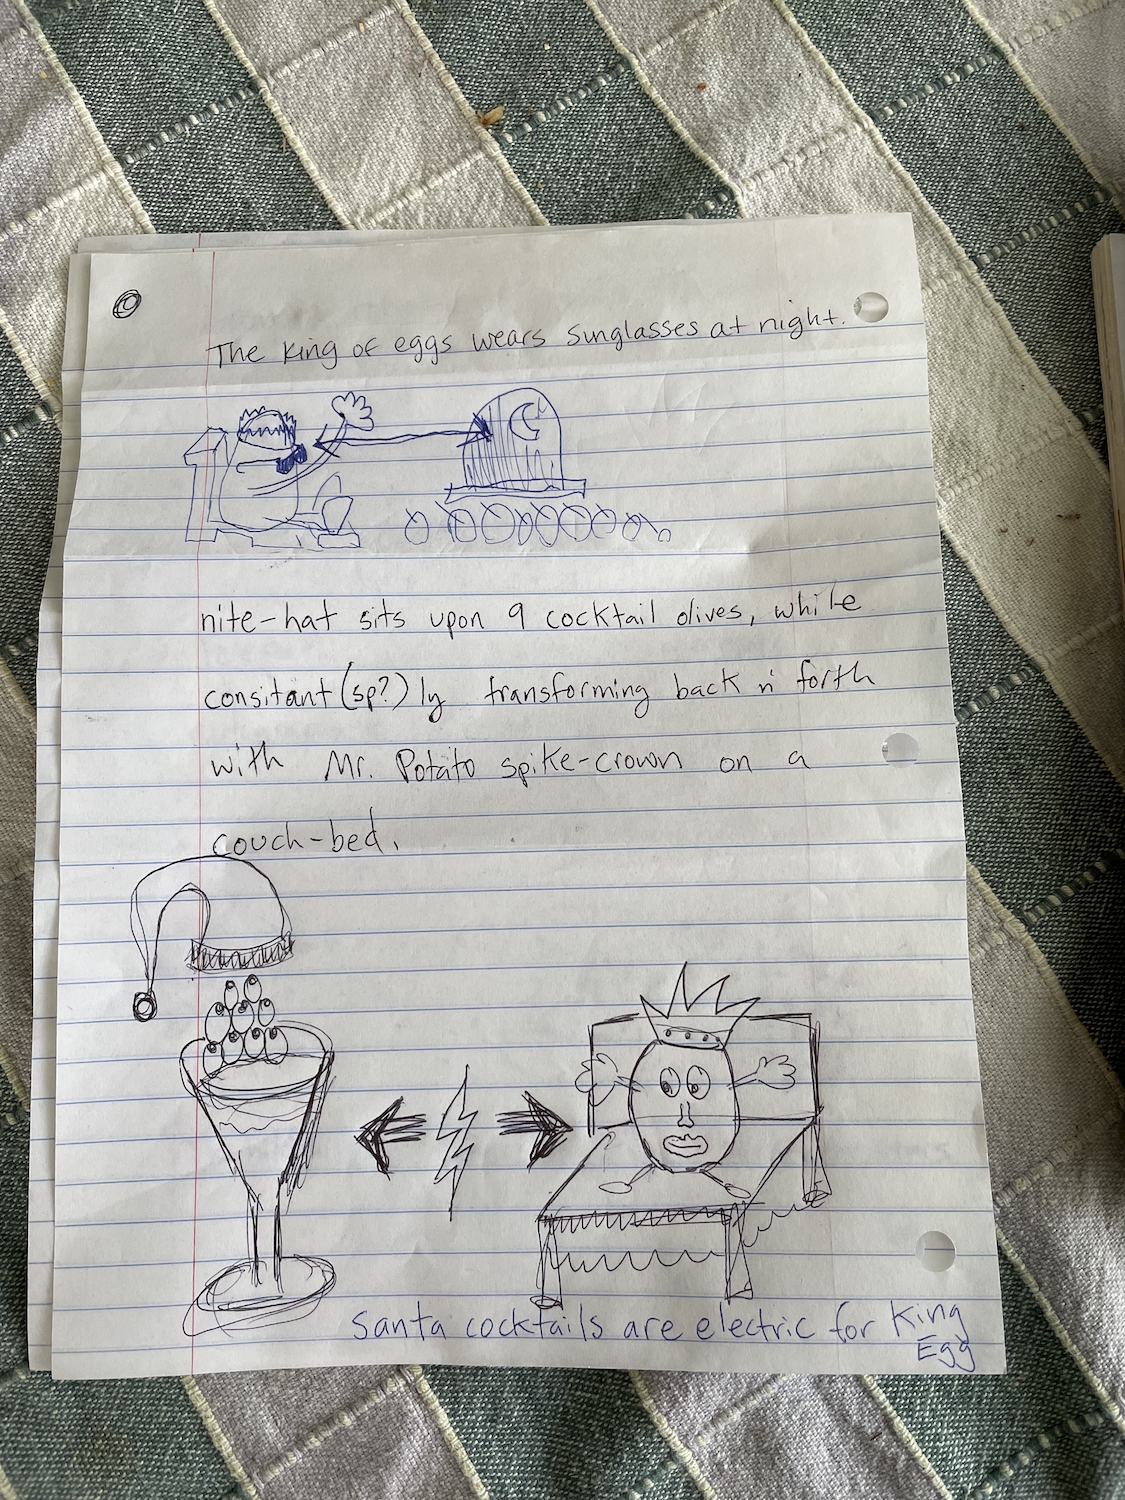 The King of eggs wears sunglasses at night.
nite-hat sits upon 9 cocktail olives, while
consitant (sp?) ly transforming back n' forth
with Mr. Potato spike-crown on a
couch-bed.
Santa cocktails are electric for King
Egg